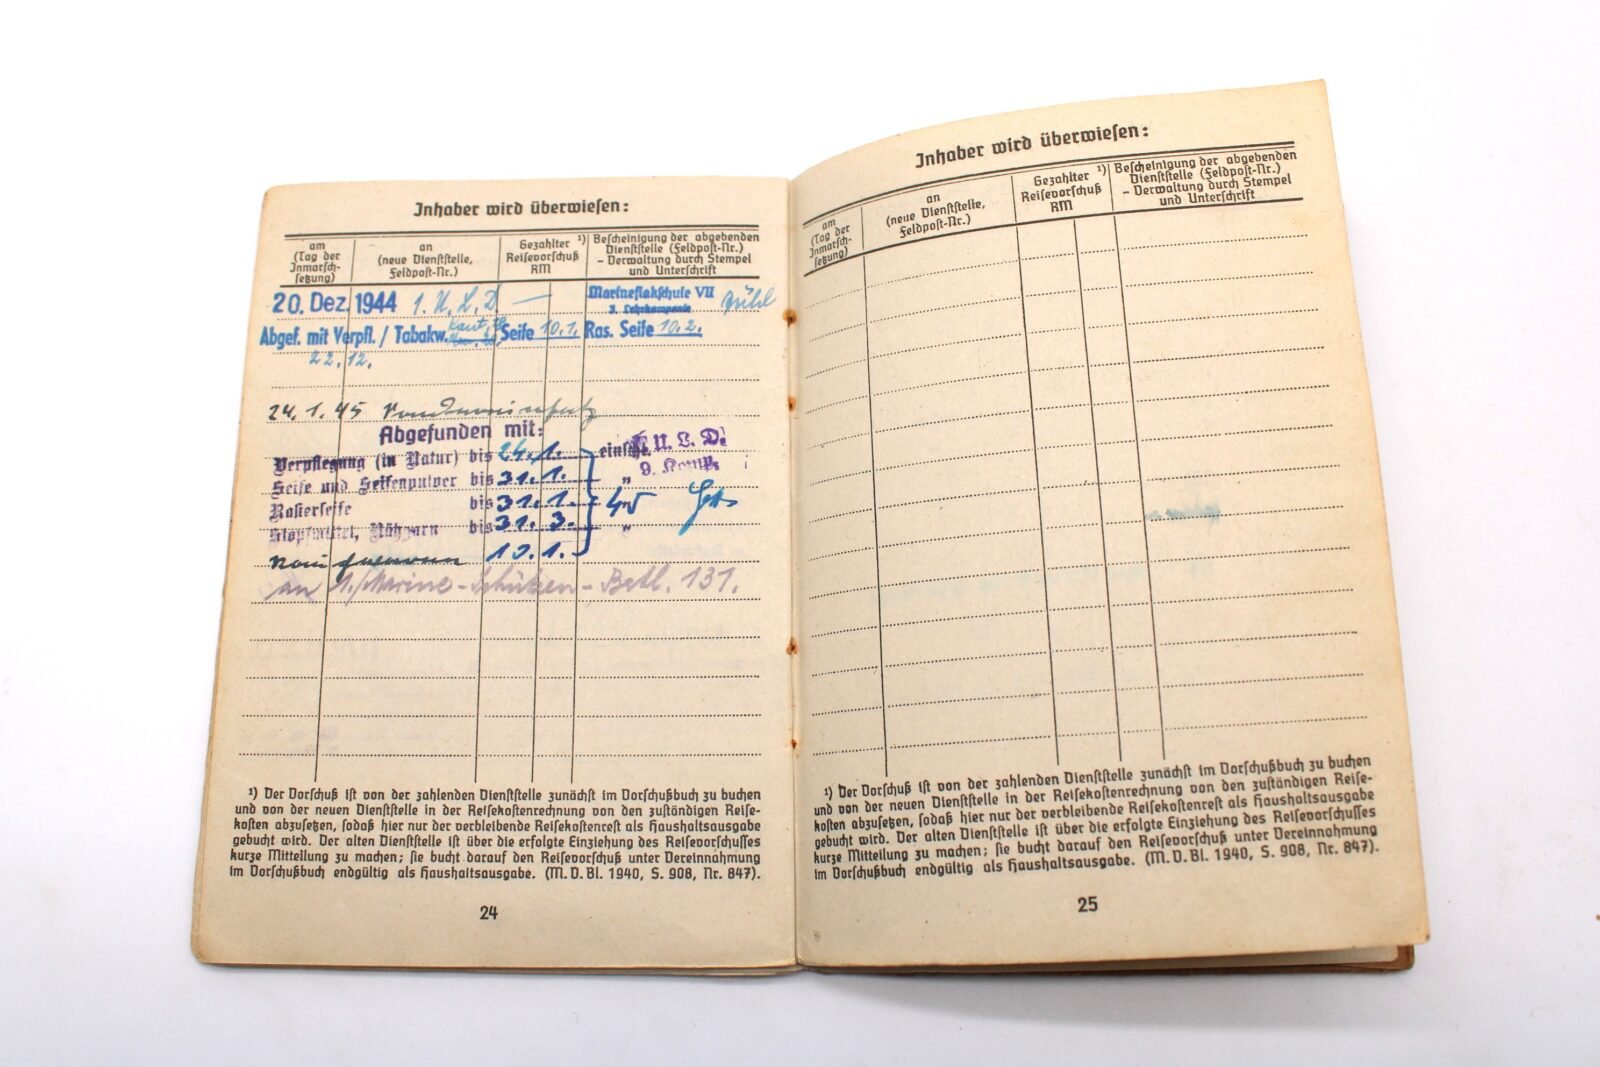 Inhaber wird überwiesen:
am
(Tag der
Inmarsch-
setzung)
an
(neue Dienststelle,
Feldpost-Nr.)
Gezahlter ¹)
Reisevorschuß
RM
Bescheinigung der abgebenden
Dienststelle (Feldpost-Nr.)
– Verwaltung durch Stempel
und Unterschrift
20. Dez. 1944 1. U. L. D. — Marineflakschule VII
3. Lehrkompanie
Abgef. mit Verpfl. / Tabakw. Seife 10.1. Ras. Seife 10.2.
22.12.
24.1.45
Abgefunden mit:
Verpflegung (in Natur) bis 24.1. einschl. U. L. D.
9. Komp.
Seife und Seifenpulver bis 31.1. "
Rasierseife bis 31.1.
Stopfmittel, Nähgarn bis 31.3. "
10.1.
an 1./Marine-Schützen-Batl. 131.
¹) Der Vorschuß ist von der zahlenden Dienststelle zunächst im Vorschußbuch zu buchen
und von der neuen Dienststelle in der Reisekostenrechnung von den zuständigen Reise-
kosten abzusetzen, sodaß hier nur der verbleibende Reisekostenrest als Haushaltsausgabe
gebucht wird. Der alten Dienststelle ist über die erfolgte Einziehung des Reisevorschusses
kurze Mitteilung zu machen; sie bucht darauf den Reisevorschuß unter Vereinnahmung
im Vorschußbuch endgültig als Haushaltsausgabe. (M.D.Bl. 1940, S. 908, Nr. 847).
24
Inhaber wird überwiesen:
am
(Tag der
Inmarsch-
setzung)
an
(neue Dienststelle,
Feldpost-Nr.)
Gezahlter ¹)
Reisevorschuß
RM
Bescheinigung der abgebenden
Dienststelle (Feldpost-Nr.)
– Verwaltung durch Stempel
und Unterschrift
¹) Der Vorschuß ist von der zahlenden Dienststelle zunächst im Vorschußbuch zu buchen
und von der neuen Dienststelle in der Reisekostenrechnung von den zuständigen Reise-
kosten abzusetzen, sodaß hier nur der verbleibende Reisekostenrest als Haushaltsausgabe
gebucht wird. Der alten Dienststelle ist über die erfolgte Einziehung des Reisevorschusses
kurze Mitteilung zu machen; sie bucht darauf den Reisevorschuß unter Vereinnahmung
im Vorschußbuch endgültig als Haushaltsausgabe. (M.D.Bl. 1940, S. 908, Nr. 847).
25